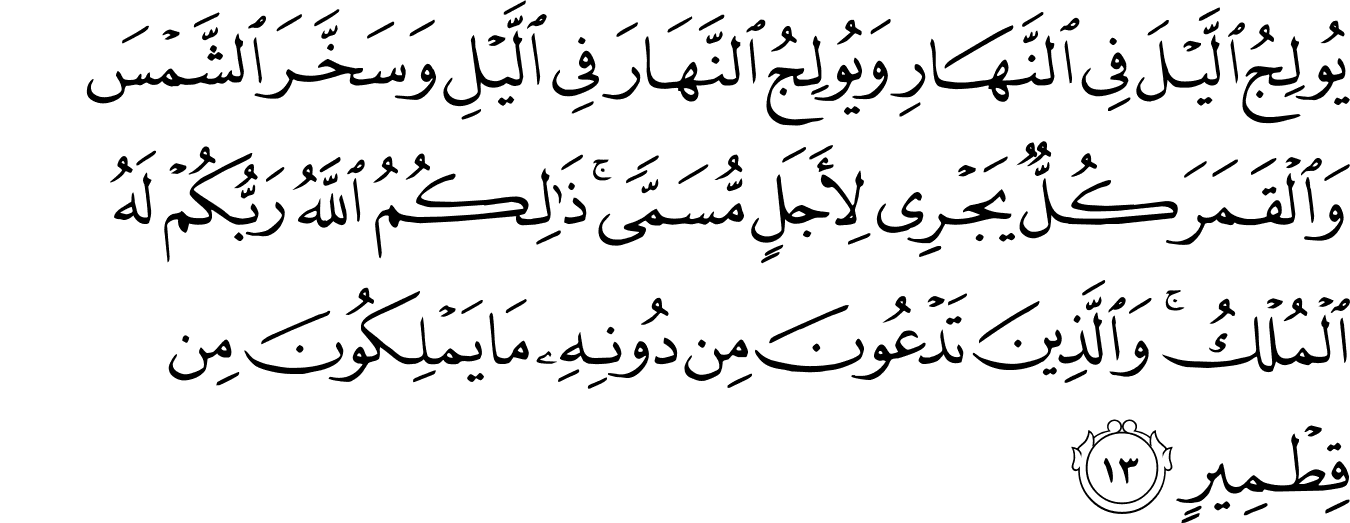 يُولِجُ ٱلَّيْلَ فِى ٱلنَّهَارِ وَيُولِجُ ٱلنَّهَارَ فِى ٱلَّيْلِ وَسَخَّرَ ٱلشَّمْسَ
وَٱلْقَمَرَ كُلٌّ يَجْرِى لِأَجَلٍ مُّسَمًّى ۚ ذَٰلِكُمُ ٱللَّهُ رَبُّكُمْ لَهُ
ٱلْمُلْكُ ۚ وَٱلَّذِينَ تَدْعُونَ مِن دُونِهِۦ مَا يَمْلِكُونَ مِن
قِطْمِيرٍ ١٣